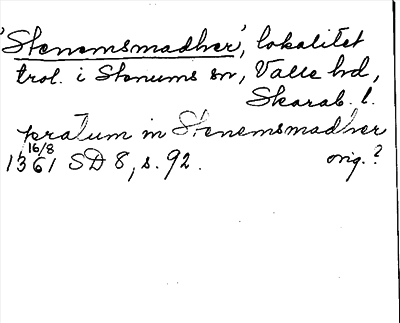 'Stenemsmadher', lokalitet
trol. i Stenums sn, Valle hd,
Skarab. l.
pratum in Stenemsmadher
16/8
1361 SD 8, s. 92. orig.?